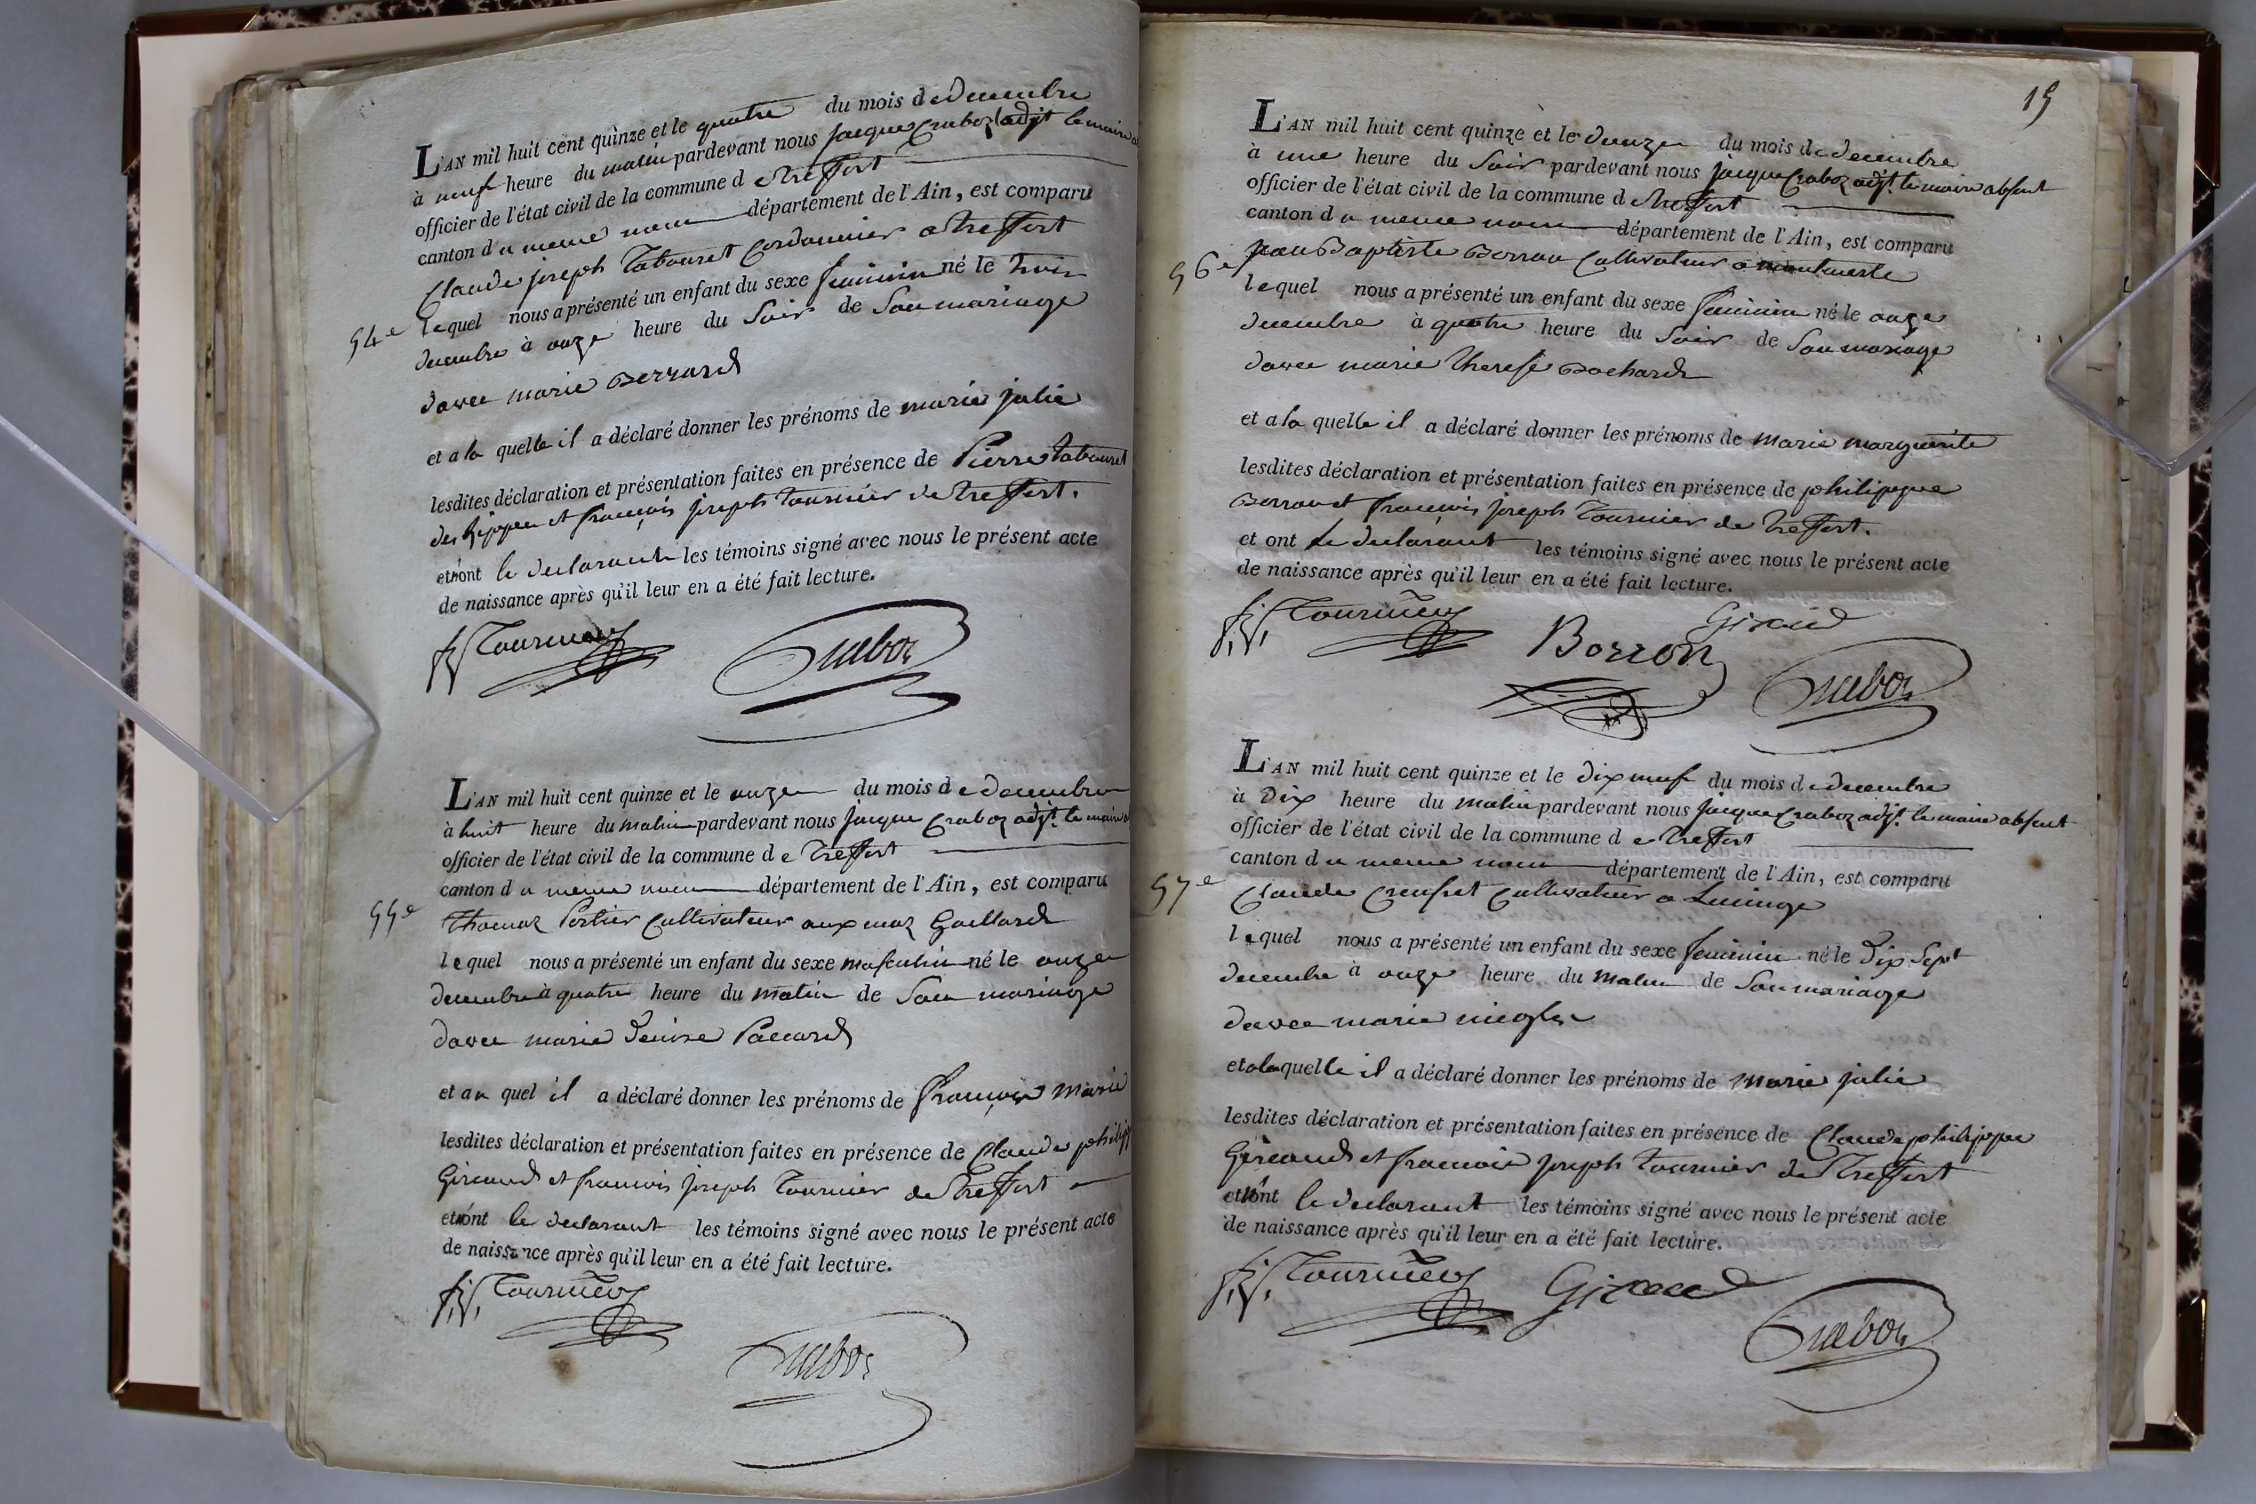 L'AN mil huit cent quinze et le quatre du mois de decembre
à neuf heure du matin pardevant nous jacque Craboz adjt le maire
officier de l'état civil de la commune de treffort
canton du meme nom département de l'Ain, est comparu
Claude joseph Tabouret Cordonnier a treffort
54e
lequel nous a présenté un enfant du sexe feminin né le trois
decembre à onze heure du Soir de Son mariage
davec marie Berrard
et a la quelle il a déclaré donner les prénoms de marie julie
lesdites déclaration et présentation faites en présence de Pierre tabouret
et françois joseph tournier de treffort.
et ont le declarant les témoins signé avec nous le présent acte
de naissance après qu'il leur en a été fait lecture.
f. j. Tournier
Craboz
L'AN mil huit cent quinze et le onze du mois de decembre
à huit heure du matin pardevant nous jacque Craboz adjt le maire
officier de l'état civil de la commune de treffort
canton du meme nom département de l'Ain, est comparu
55e
thomas Portier Cultivateur aux maz Gaillard
lequel nous a présenté un enfant du sexe masculin né le onze
decembre à quatre heure du matin de Son mariage
davec marie Denise Paccard
et au quel il a déclaré donner les prénoms de françois marie
lesdites déclaration et présentation faites en présence de Claude philipp
Giraud et francois joseph tournier de treffort
et ont le declarant les témoins signé avec nous le présent acte
de naissance après qu'il leur en a été fait lecture.
f. j. Tournier
Craboz
19
L'AN mil huit cent quinze et le douze du mois de decembre
à une heure du Soir pardevant nous jacque Craboz adjt le maire absent
officier de l'état civil de la commune de treffort
canton du meme nom département de l'Ain, est comparu
56e
jean Baptiste Borron Cultivateur a
lequel nous a présenté un enfant du sexe feminin né le onze
decembre à quatre heure du Soir de Son mariage
davec marie therese Bochard
et a la quelle il a déclaré donner les prénoms de marie marguerite
lesdites déclaration et présentation faites en présence de philippe
Borron et françois joseph tournier de treffort.
et ont le declarant les témoins signé avec nous le présent acte
de naissance après qu'il leur en a été fait lecture.
f. j. Tournier
Giraud
Borron
Craboz
L'AN mil huit cent quinze et le dix neuf du mois de decembre
à Dix heure du matin pardevant nous jacque Craboz adjt le maire absent
officier de l'état civil de la commune de treffort
canton du meme nom département de l'Ain, est comparu
57e
Claude Cultivateur a
lequel nous a présenté un enfant du sexe feminin né le Dix Sept
decembre à onze heure du matin de Son mariage
davec marie
et a la quelle il a déclaré donner les prénoms de marie julie
lesdites déclaration et présentation faites en présence de Claude philippe
Giraud et francois joseph tournier de treffort
et ont le declarant les témoins signé avec nous le présent acte
de naissance après qu'il leur en a été fait lecture.
f. j. Tournier
Giraud
Craboz